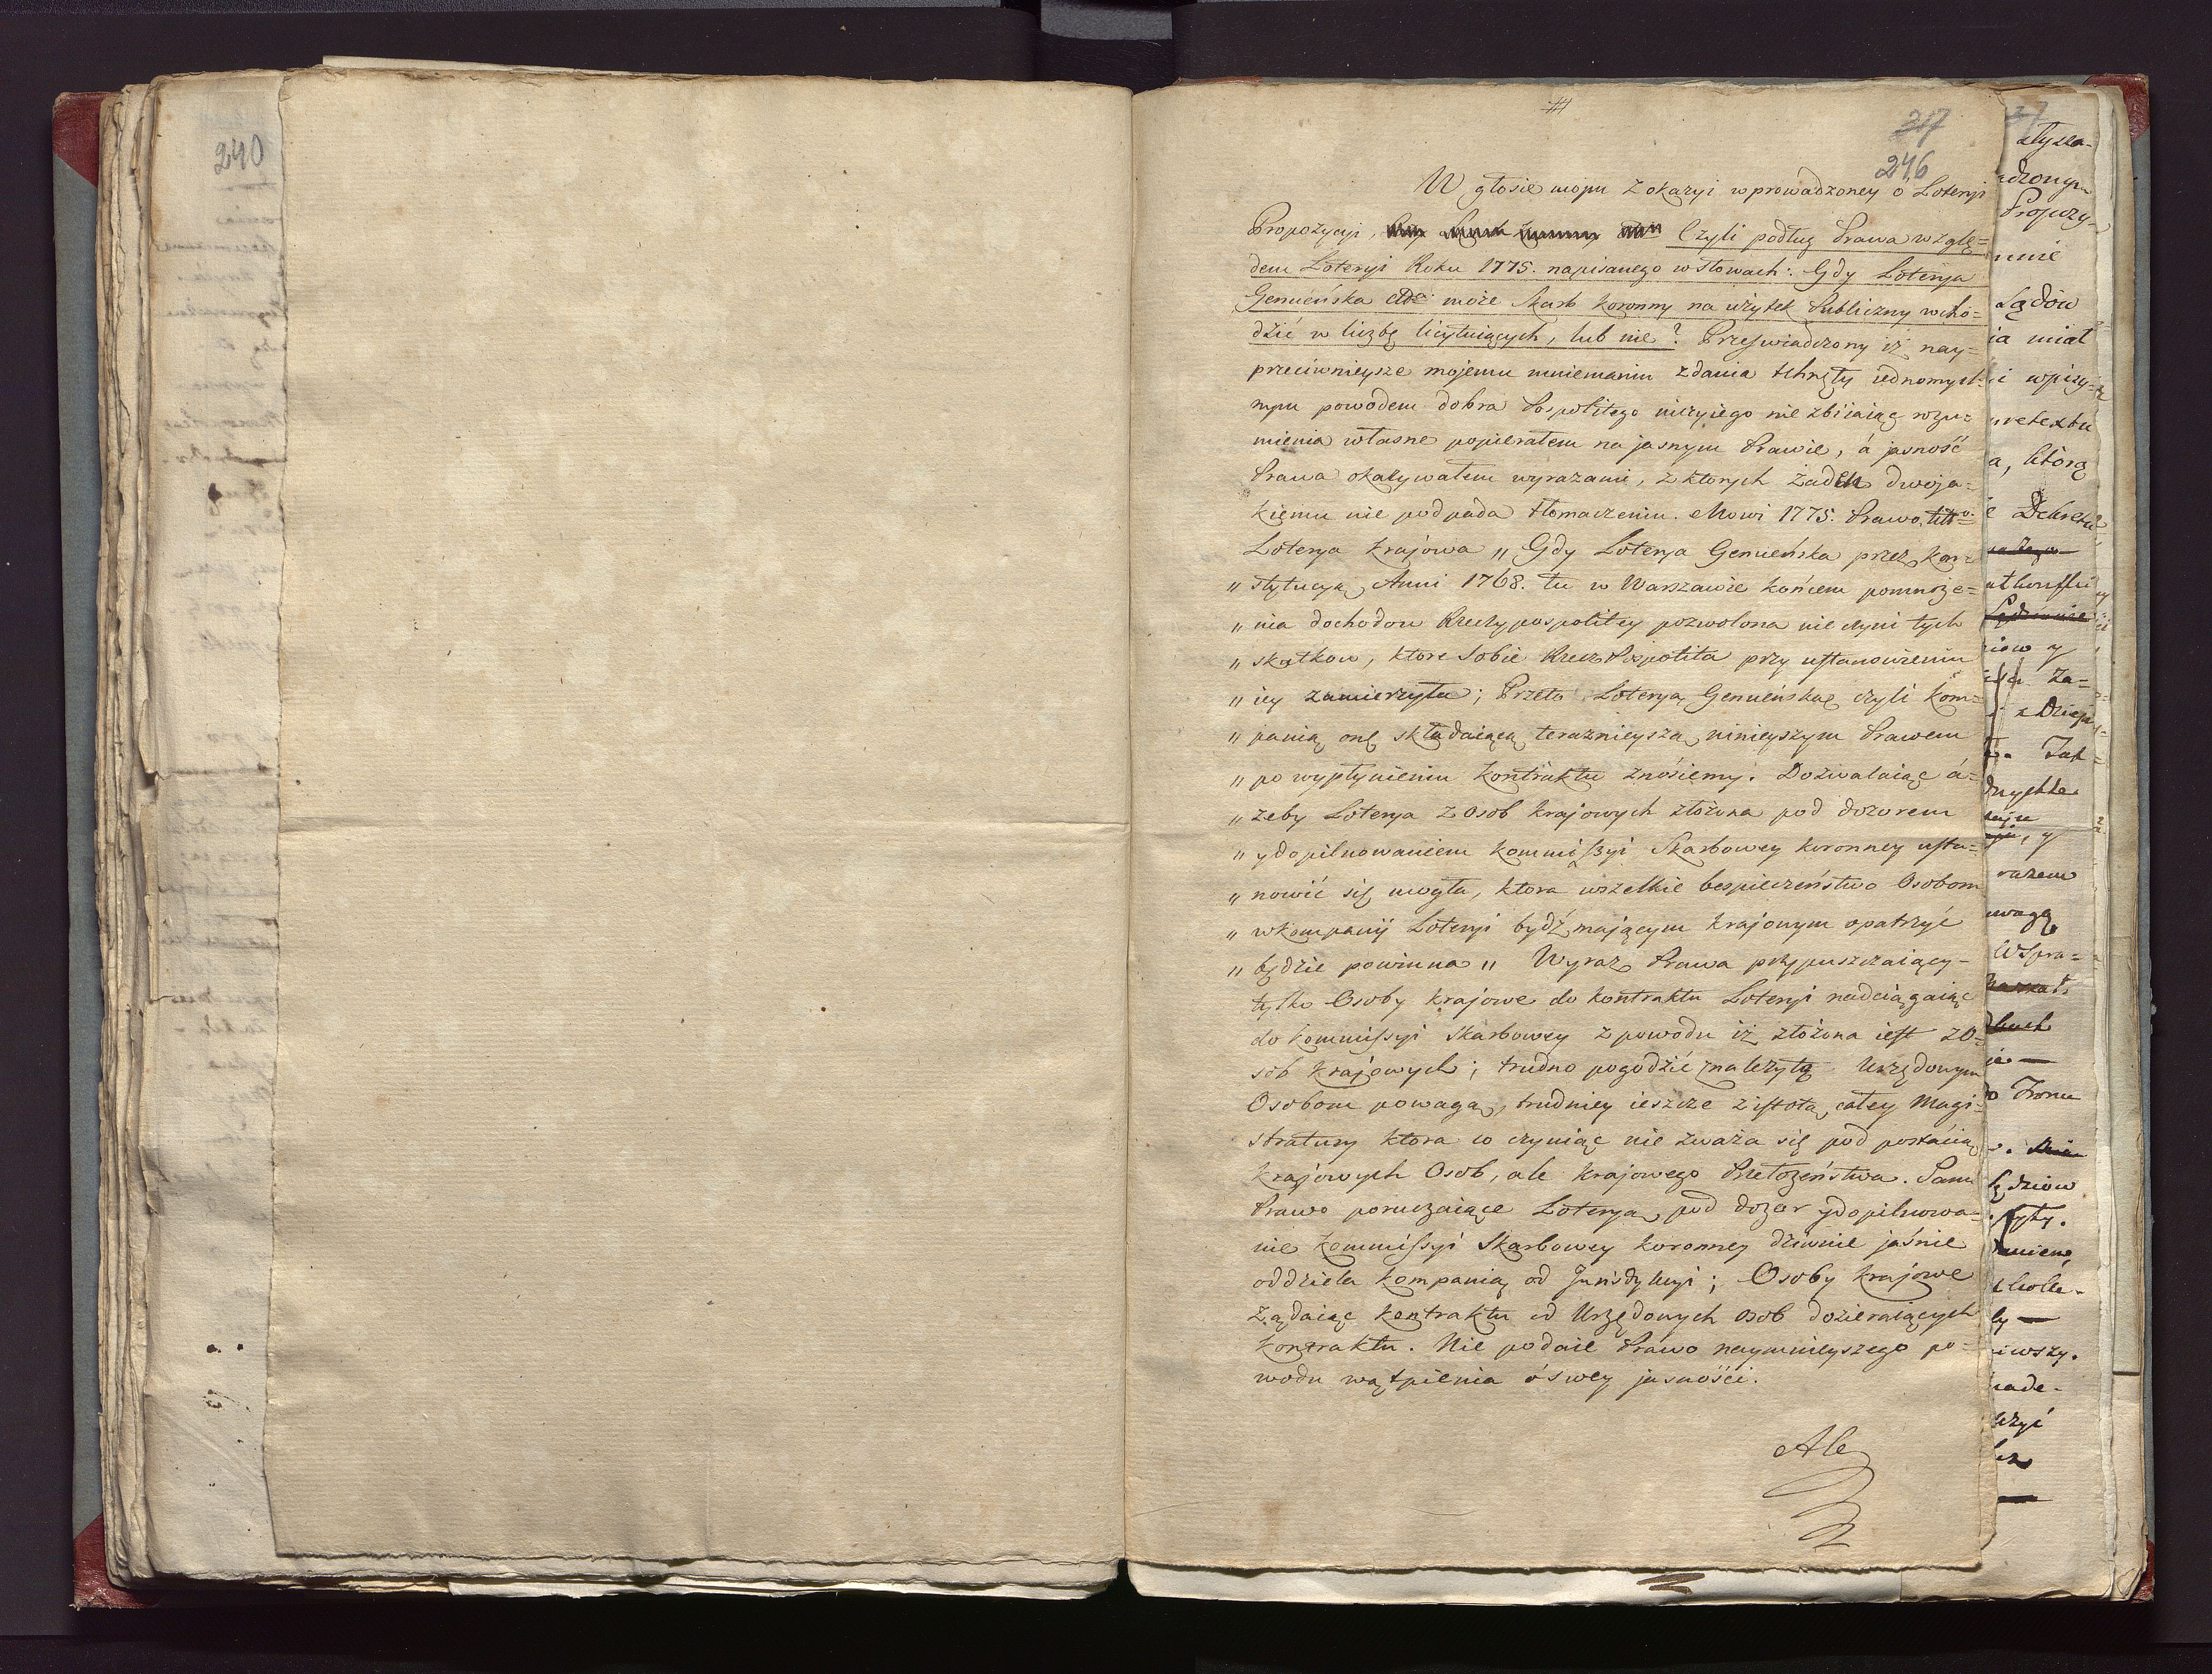 240
#
317
246
W głosie mojm z okazyi wprowadzoney o Loteryi
Propozycyi, Czyli podług Prawa wzglę=
dem Loteryi Roku 1775. napisanego w słowach: Gdy Loterya
Genueńska etca może Skarb koronny na użytek Publiczny wcho=
dzić w liczbę licytuiących, lub nie? Przeswiadczony iż nay=
przeciwnieysze mojemu mniemaniu zdania tchnęły iednomysl=
nym powodem dobra Pospolitego niczyiego nie zbiiaiąc rozu=
mienia własne popierałem na jasnym Prawie, á jasność
Prawa okazywałem wyrazami, z ktorych żaden dwoja=
kiemu nie podpada tłomaczeniu. Mowi 1775. Prawo titto
Loterya krajowa „ Gdy Loterya Genueńska przez kon=
„ stytucyą Anni 1768. tu w Warszawie końcem pomnoże=
„ nia dochodow Rzeczypospolitey pozwolona nie czyni tych
„ skutkow, ktore sobie Rzecz Pospolita przy ustanowieniu
„ iey zamierzyła; Przeto Loteryą Genueńską czyli kom=
„ panią onę składaiącą teraznieyszą ninieyszym Prawem
„ po wypłynieniu kontraktu znosiemy. Dozwalaiąc á=
„ żeby Loterya z osob krajowych złożona pod dozorem
„ y dopilnowaniem kommissyi Skarbowey koronney usta=
„ nowić się mogła, ktora wszelkie bespieczeństwo Osobom
„ w kompanij Loteryi bydź mającym krajowym opatrzyć
„ będzie powinna „ Wyraz Prawa przypuszczaiący
tylko Osoby krajowe do kontraktu Loteryi nadciągaiąc
do kommissyi Skarbowey z powodu iż złożona iest z O=
sob krajowych; trudno pogodzić z należytą Urzędowym
Osobom powagą, trudniey ieszcze z istotą całey Magi=
stratury ktora co czyniąc nie zważa się pod postacią
krajowych Osob, ale krajowego Przełożeństwa. Samo
Prawo poruczaiące Loteryą pod dozor y dopilnowa=
nie kommissyi Skarbowey koronney dziwnie jaśnie
oddziela kompanią od Jurisdykcyi; Osoby krajowe
żądaiąc kontraktu od Urzędowych osob dozieraiących
kontraktu. Nie podaie Prawo naymnieyszego po=
wodu wątpienia ó swey jasności.
Ale